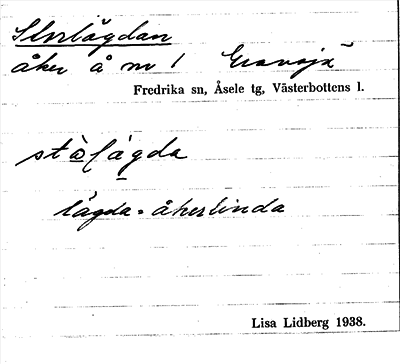 Storlägdan
åker å nr 1 Gransjö
Fredrika sn, Åsele tg, Västerbottens l.
lägda = åkerlinda
Lisa Lidberg 1938.